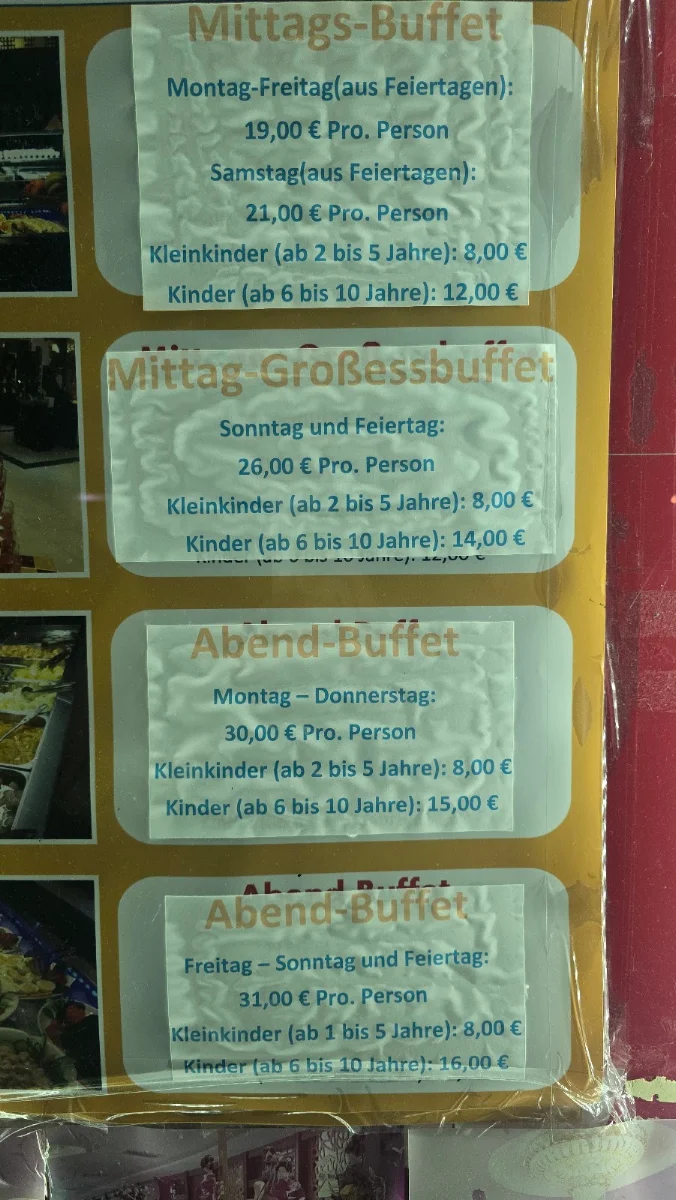 Mittags-Buffet
Montag-Freitag(aus Feiertagen):
19,00 € Pro. Person
Samstag(aus Feiertagen):
21,00 € Pro. Person
Kleinkinder (ab 2 bis 5 Jahre): 8,00 €
Kinder (ab 6 bis 10 Jahre): 12,00 €
Mittag-Großessbuffet
Sonntag und Feiertag:
26,00 € Pro. Person
Kleinkinder (ab 2 bis 5 Jahre): 8,00 €
Kinder (ab 6 bis 10 Jahre): 14,00 €
Kinder (ab 6 bis 10 Jahre): 12,00 €
Abend-Buffet
Montag – Donnerstag:
30,00 € Pro. Person
Kleinkinder (ab 2 bis 5 Jahre): 8,00 €
Kinder (ab 6 bis 10 Jahre): 15,00 €
Abend-Buffet
Abend-Buffet
Freitag – Sonntag und Feiertag:
31,00 € Pro. Person
Kleinkinder (ab 1 bis 5 Jahre): 8,00 €
Kinder (ab 6 bis 10 Jahre): 16,00 €